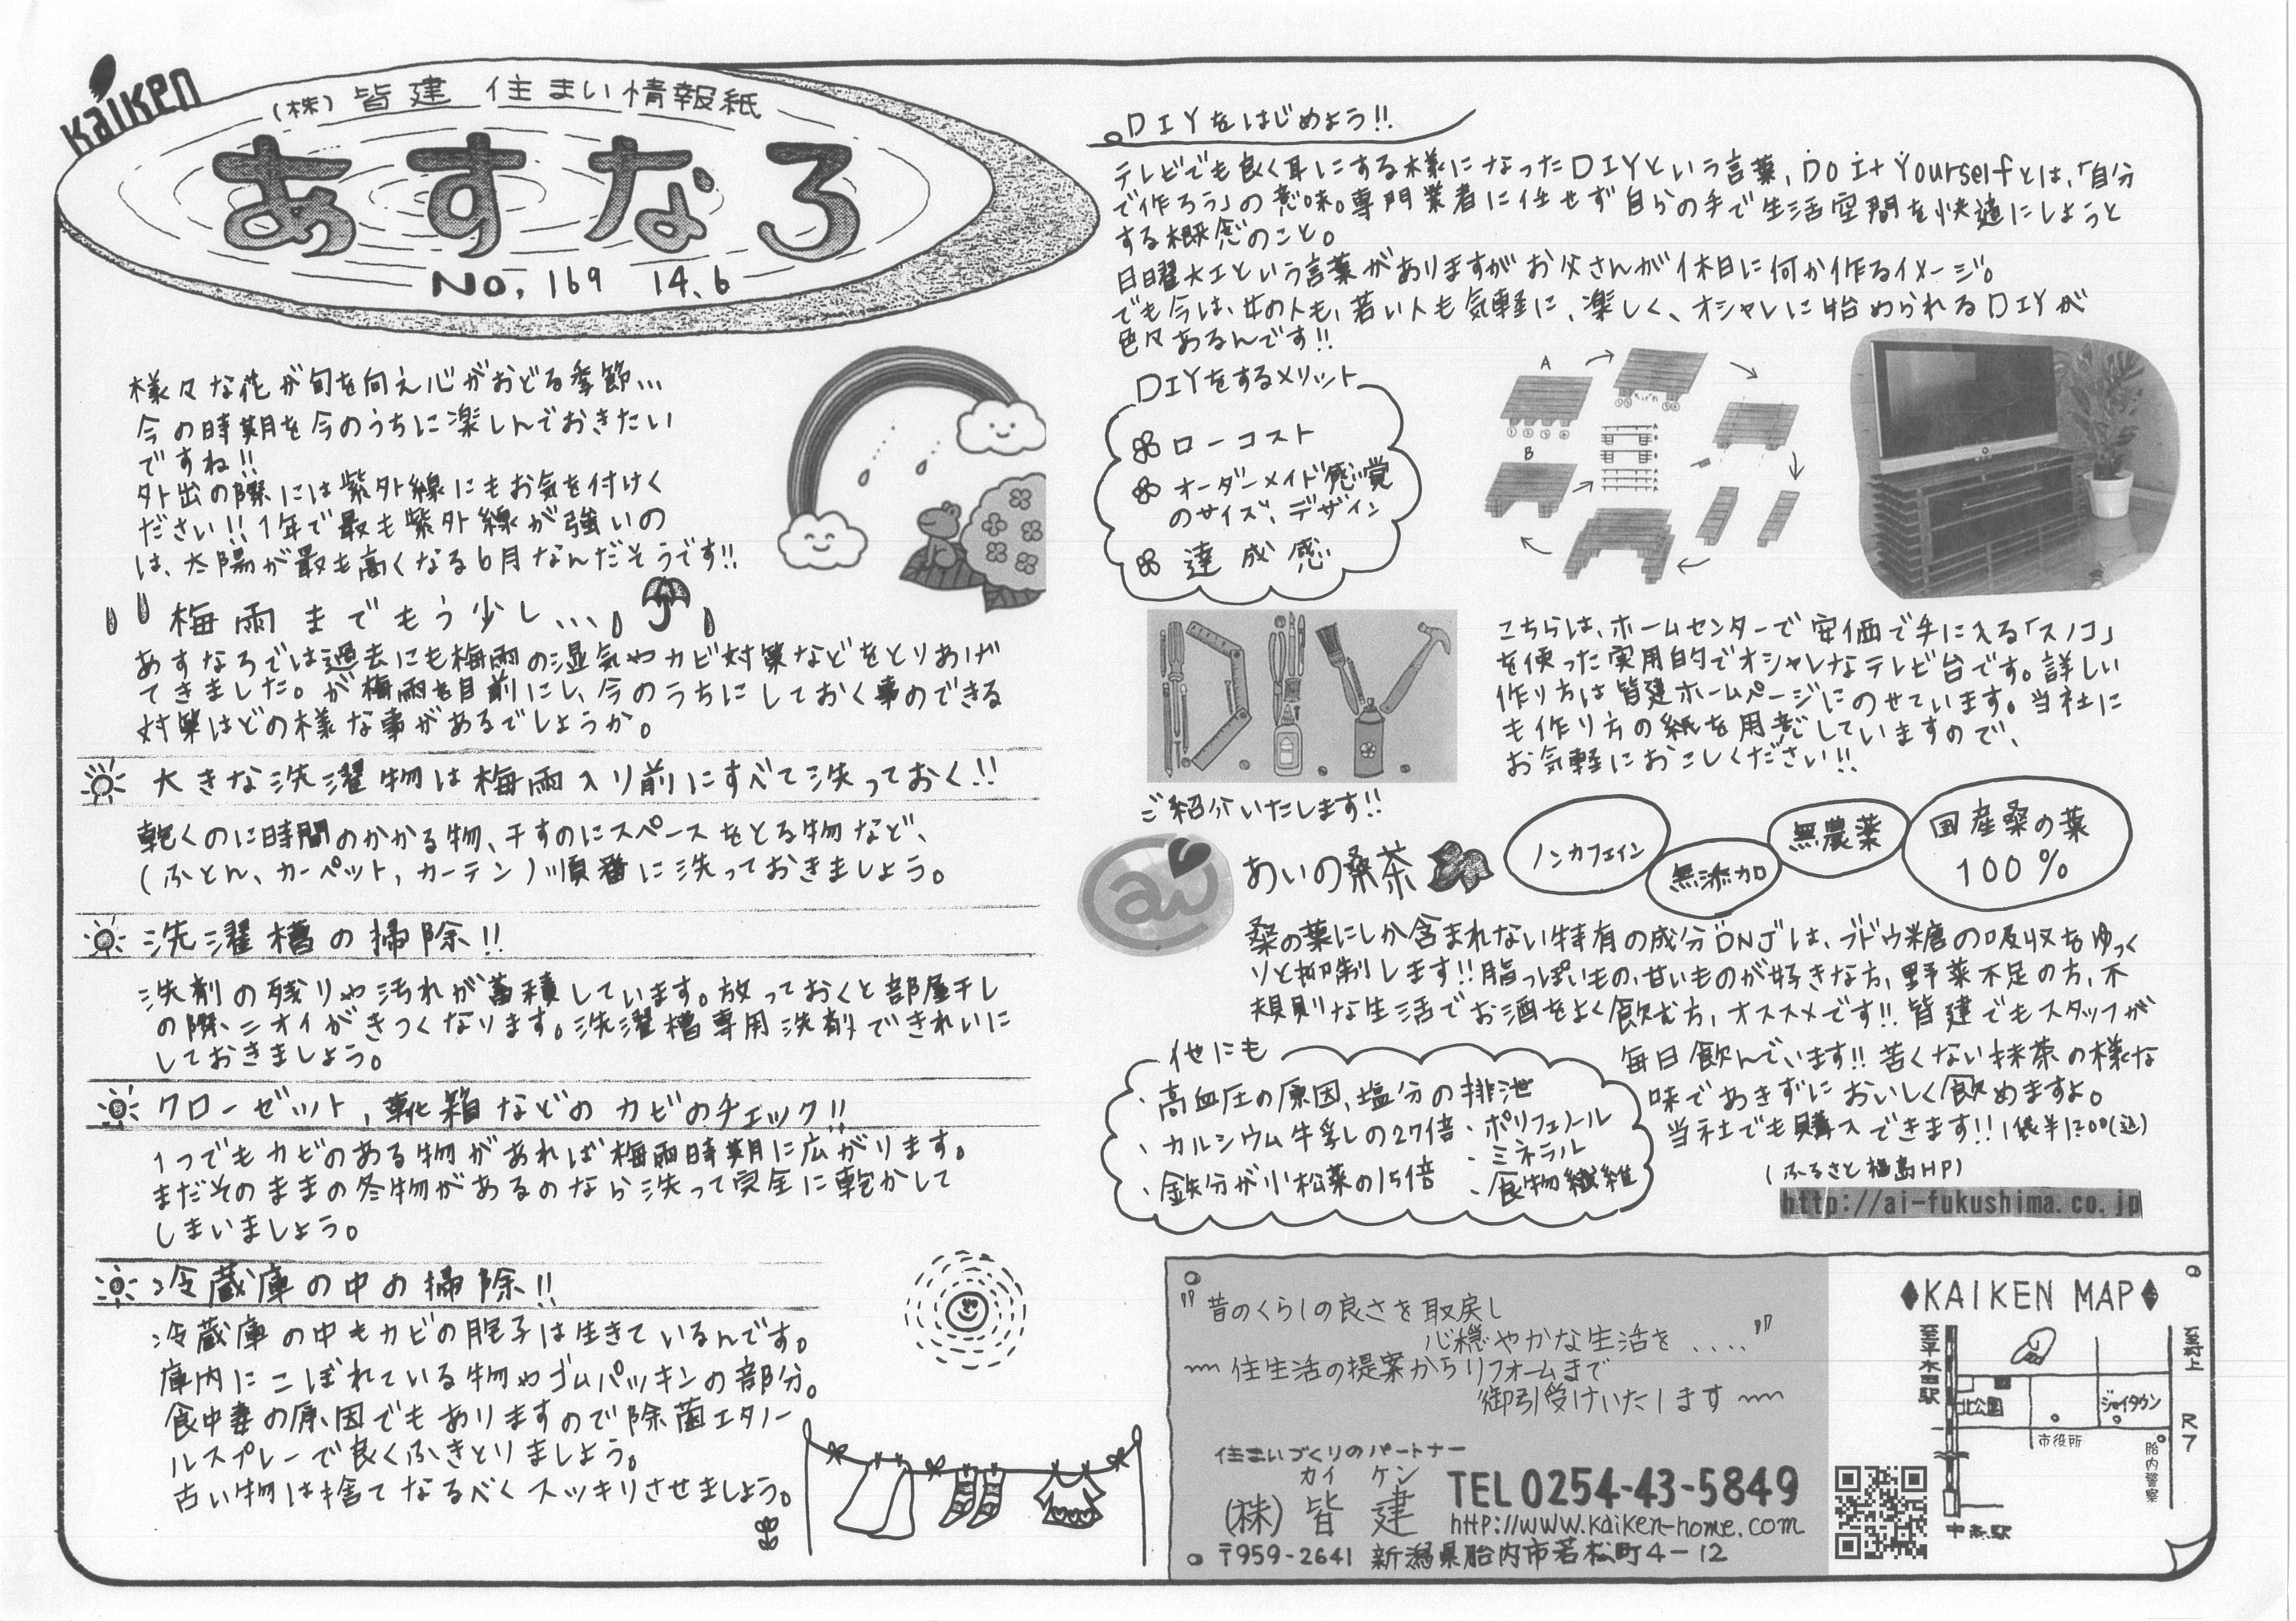 Kaiken
(株)皆建 住まい情報紙
あすなろ
No. 169 14.6
様々な花が旬を向え心がおどる季節…
今の時期を今のうちに楽しんでおきたい
ですね!!
外出の際には紫外線にもお気を付けく
ださい!!1年で最も紫外線が強いの
は、太陽が最も高くなる6月なんだそうです!!
梅雨までもう少し…
あすなろでは過去にも梅雨の湿気やカビ対策などをとりあげ
てきました。が梅雨を目前にし、今のうちにしておく事のできる
対策はどの様な事があるでしょうか。
大きな洗濯物は梅雨入り前にすべて洗っておく!!
乾くのに時間のかかる物、干すのにスペースをとる物など、
(ふとん、カーペット,カーテン)順番に洗っておきましょう。
洗濯槽の掃除!!
洗剤の残りや汚れが蓄積しています。放っておくと部屋干し
の際、ニオイがきつくなります。洗濯槽専用洗剤できれいに
しておきましょう。
クローゼット,靴箱などのカビのチェック!!
1つでもカビのある物があれば梅雨時期に広がります。
まだそのままの冬物があるのなら洗って完全に乾かして
しまいましょう。
冷蔵庫の中の掃除!!
冷蔵庫の中もカビの胞子は生きているんです。
庫内にこぼれている物やゴムパッキンの部分。
食中毒の原因でもありますので除菌エタノー
ルスプレーで良くふきとりましょう。
古い物は捨てなるべくスッキリさせましょう。
DIYをはじめよう!!
テレビでも良く耳にする様になったDIYという言葉,Do It Yourselfとは、「自分
で作ろう」の意味。専門業者に任せず自らの手で生活空間を快適にしようと
する概念のこと。
日曜大工という言葉がありますがお父さんが休日に何か作るイメージ。
でも今は、女の人も、若い人も気軽に、楽しく、オシャレに始められるDIYが
色々あるんです!!
DIYをするメリット
ローコスト
オーダーメイド感覚
のサイズ、デザイン
達成感
A
B
DIY
こちらは、ホームセンターで安価で手に入る「スノコ」
を使った実用的でオシャレなテレビ台です。詳しい
作り方は皆建ホームページにのせています。当社に
も作り方の紙を用意していますので、
お気軽におこしください!!
ご紹介いたします!!
ai
あいの桑茶
ノンカフェイン
無添加
無農薬
国産桑の葉
100%
桑の葉にしか含まれない特有の成分DNJは、ブドウ糖の吸収をゆっく
りと抑制します!!脂っぽいもの、甘いものが好きな方,野菜不足の方、不
規則な生活でお酒をよく飲む方,オススメです!!皆建でもスタッフが
毎日飲んでいます!!苦くない抹茶の様な
味であきずにおいしく飲めますよ。
当社でも購入できます!!1袋¥1200(込)
(ふるさと福島HP)
http://ai-fukushima.co.jp
他にも
・高血圧の原因,塩分の排泄
・カルシウム牛乳の27倍
・ポリフェノール
・ミネラル
・鉄分が小松菜の15倍
・食物繊維
"昔のくらしの良さを取戻し
心穏やかな生活を...."
〜住生活の提案からリフォームまで
御引受けいたします〜
住まいづくりのパートナー
カイ ケン
(株)皆建
TEL 0254-43-5849
http://www.kaiken-home.com
〒959-2641 新潟県胎内市若松町4-12
◆KAIKEN MAP◆
至平木田駅
至村上
北公園
ジョイタウン
市役所
R7
胎内警察
中条駅